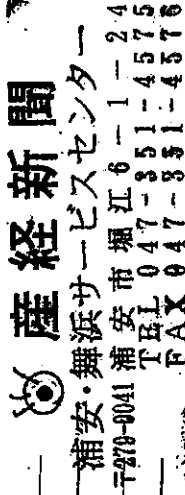 産経新聞
浦安・舞浜サービスセンター
〒279-0041 浦安市堀江6-1-24
TEL 047-351-4575
FAX 047-351-4576